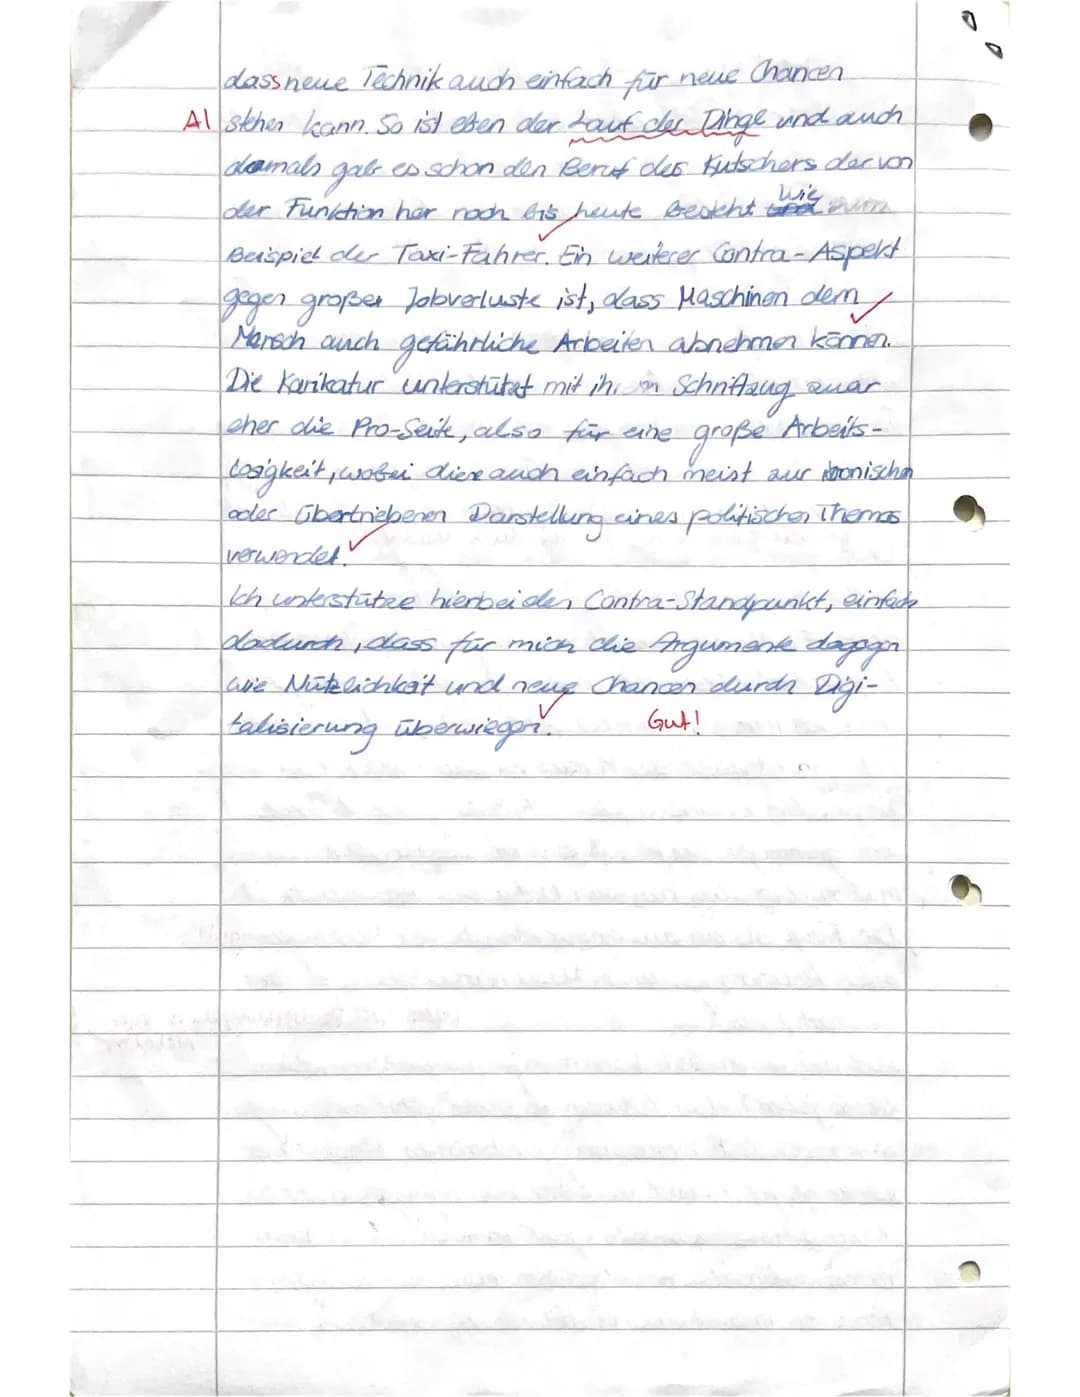 dass neue Technik auch einfach für neue Chancen
A| stehen kann. So ist eben der Lauf der Dinge und auch
damals gab es schon den Beruf des Kutschers der von
der Funktion her noch bis heute besteht wie zum
Beispiel der Taxi-Fahrer. Ein weiterer Contra-Aspekt
gegen großer Jobverluste ist, dass Maschinen dem
Mensch auch gefährliche Arbeiten abnehmen können.
Die Karikatur unterstützt mit ihrem Schriftzug zwar
eher die Pro-Seite, also für eine große Arbeits-
losigkeit, wobei diese auch einfach meist zur ironischen
oder übertriebenen Darstellung eines politischen Themas
verwendet.
Ich unterstütze hierbei den Contra-Standpunkt, einfach
dadurch, dass für mich die Argumente dagegen
wie Nützlichkeit und neue Chancen durch Digi-
talisierung überwiegen. Gut!